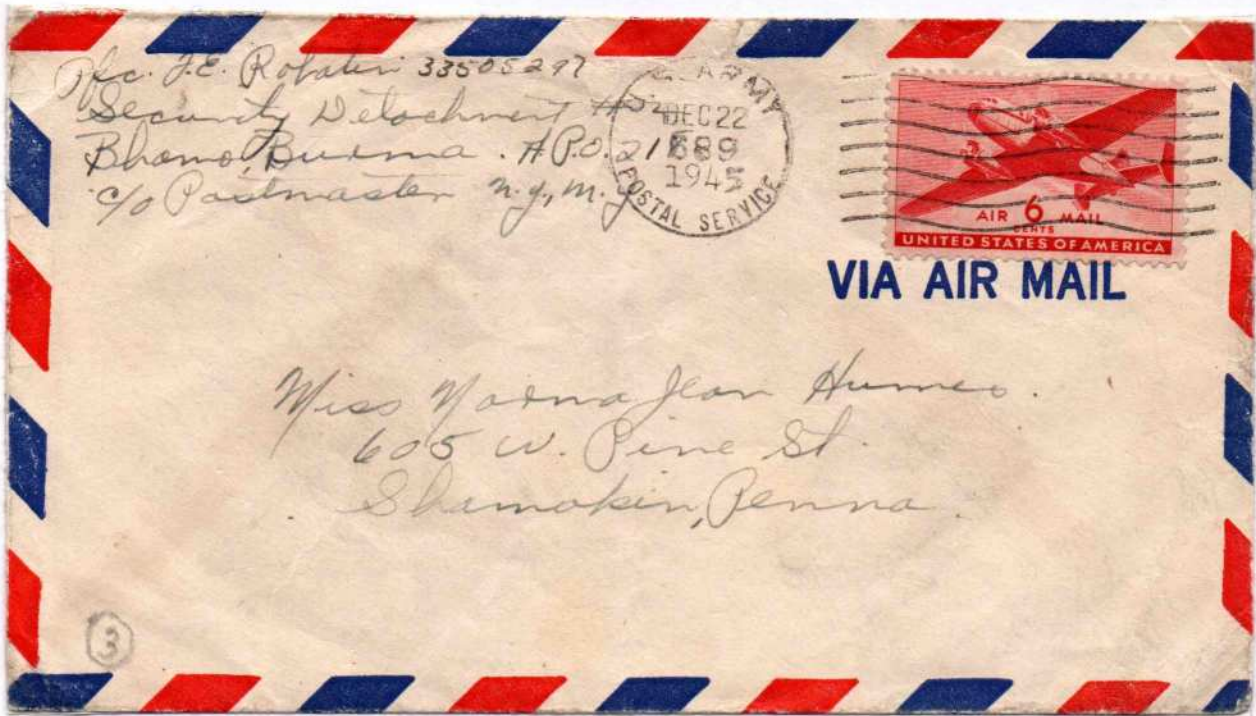 Pfc. J.E. 33505297
Security Detachment #
Bhamo, Burma. A.P.O. 218
c/o Postmaster n.y., n.y.
U.S. ARMY
DEC 22
689
1945
POSTAL SERVICE
AIR 6 MAIL
CENTS
UNITED STATES OF AMERICA
VIA AIR MAIL
Miss Norma Jean Humes.
605 W. Pine St.
Shamokin, Penna.
3